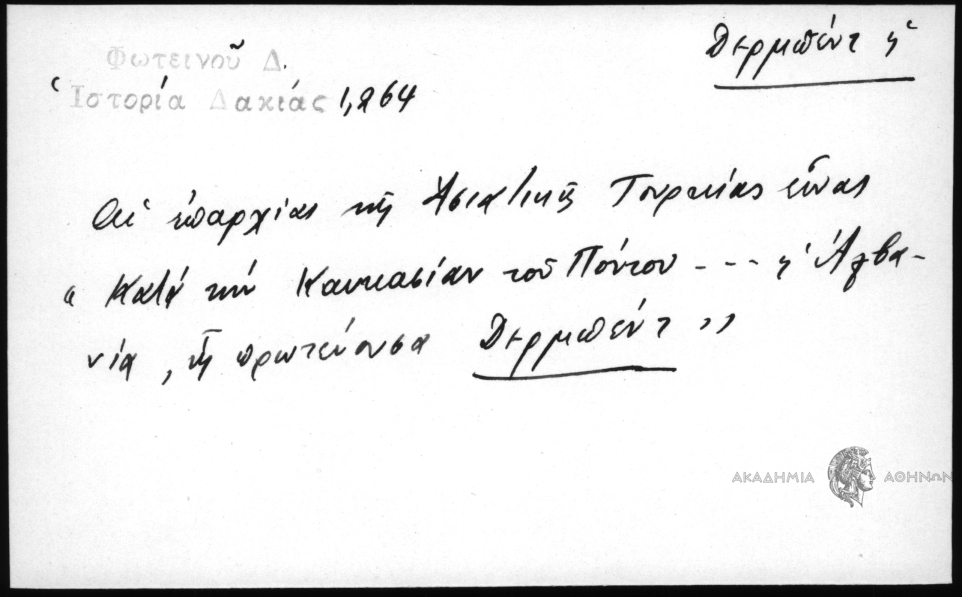 Δερμπέντ ἡ
Φωτεινοῦ Δ.
Ἱστορία Δακιάς 1,264
Αἱ ἐπαρχίαι τῆς Ἀσιατικῆς Τουρκίας εἶναι
"Κατά τήν Καυκασίαν τοῦ Πόντου --- ἡ Ἀλβα-
νία, ἧς πρωτεύουσα Δερμπέντ"
ΑΚΑΔΗΜΙΑ ΑΘΗΝΩΝ